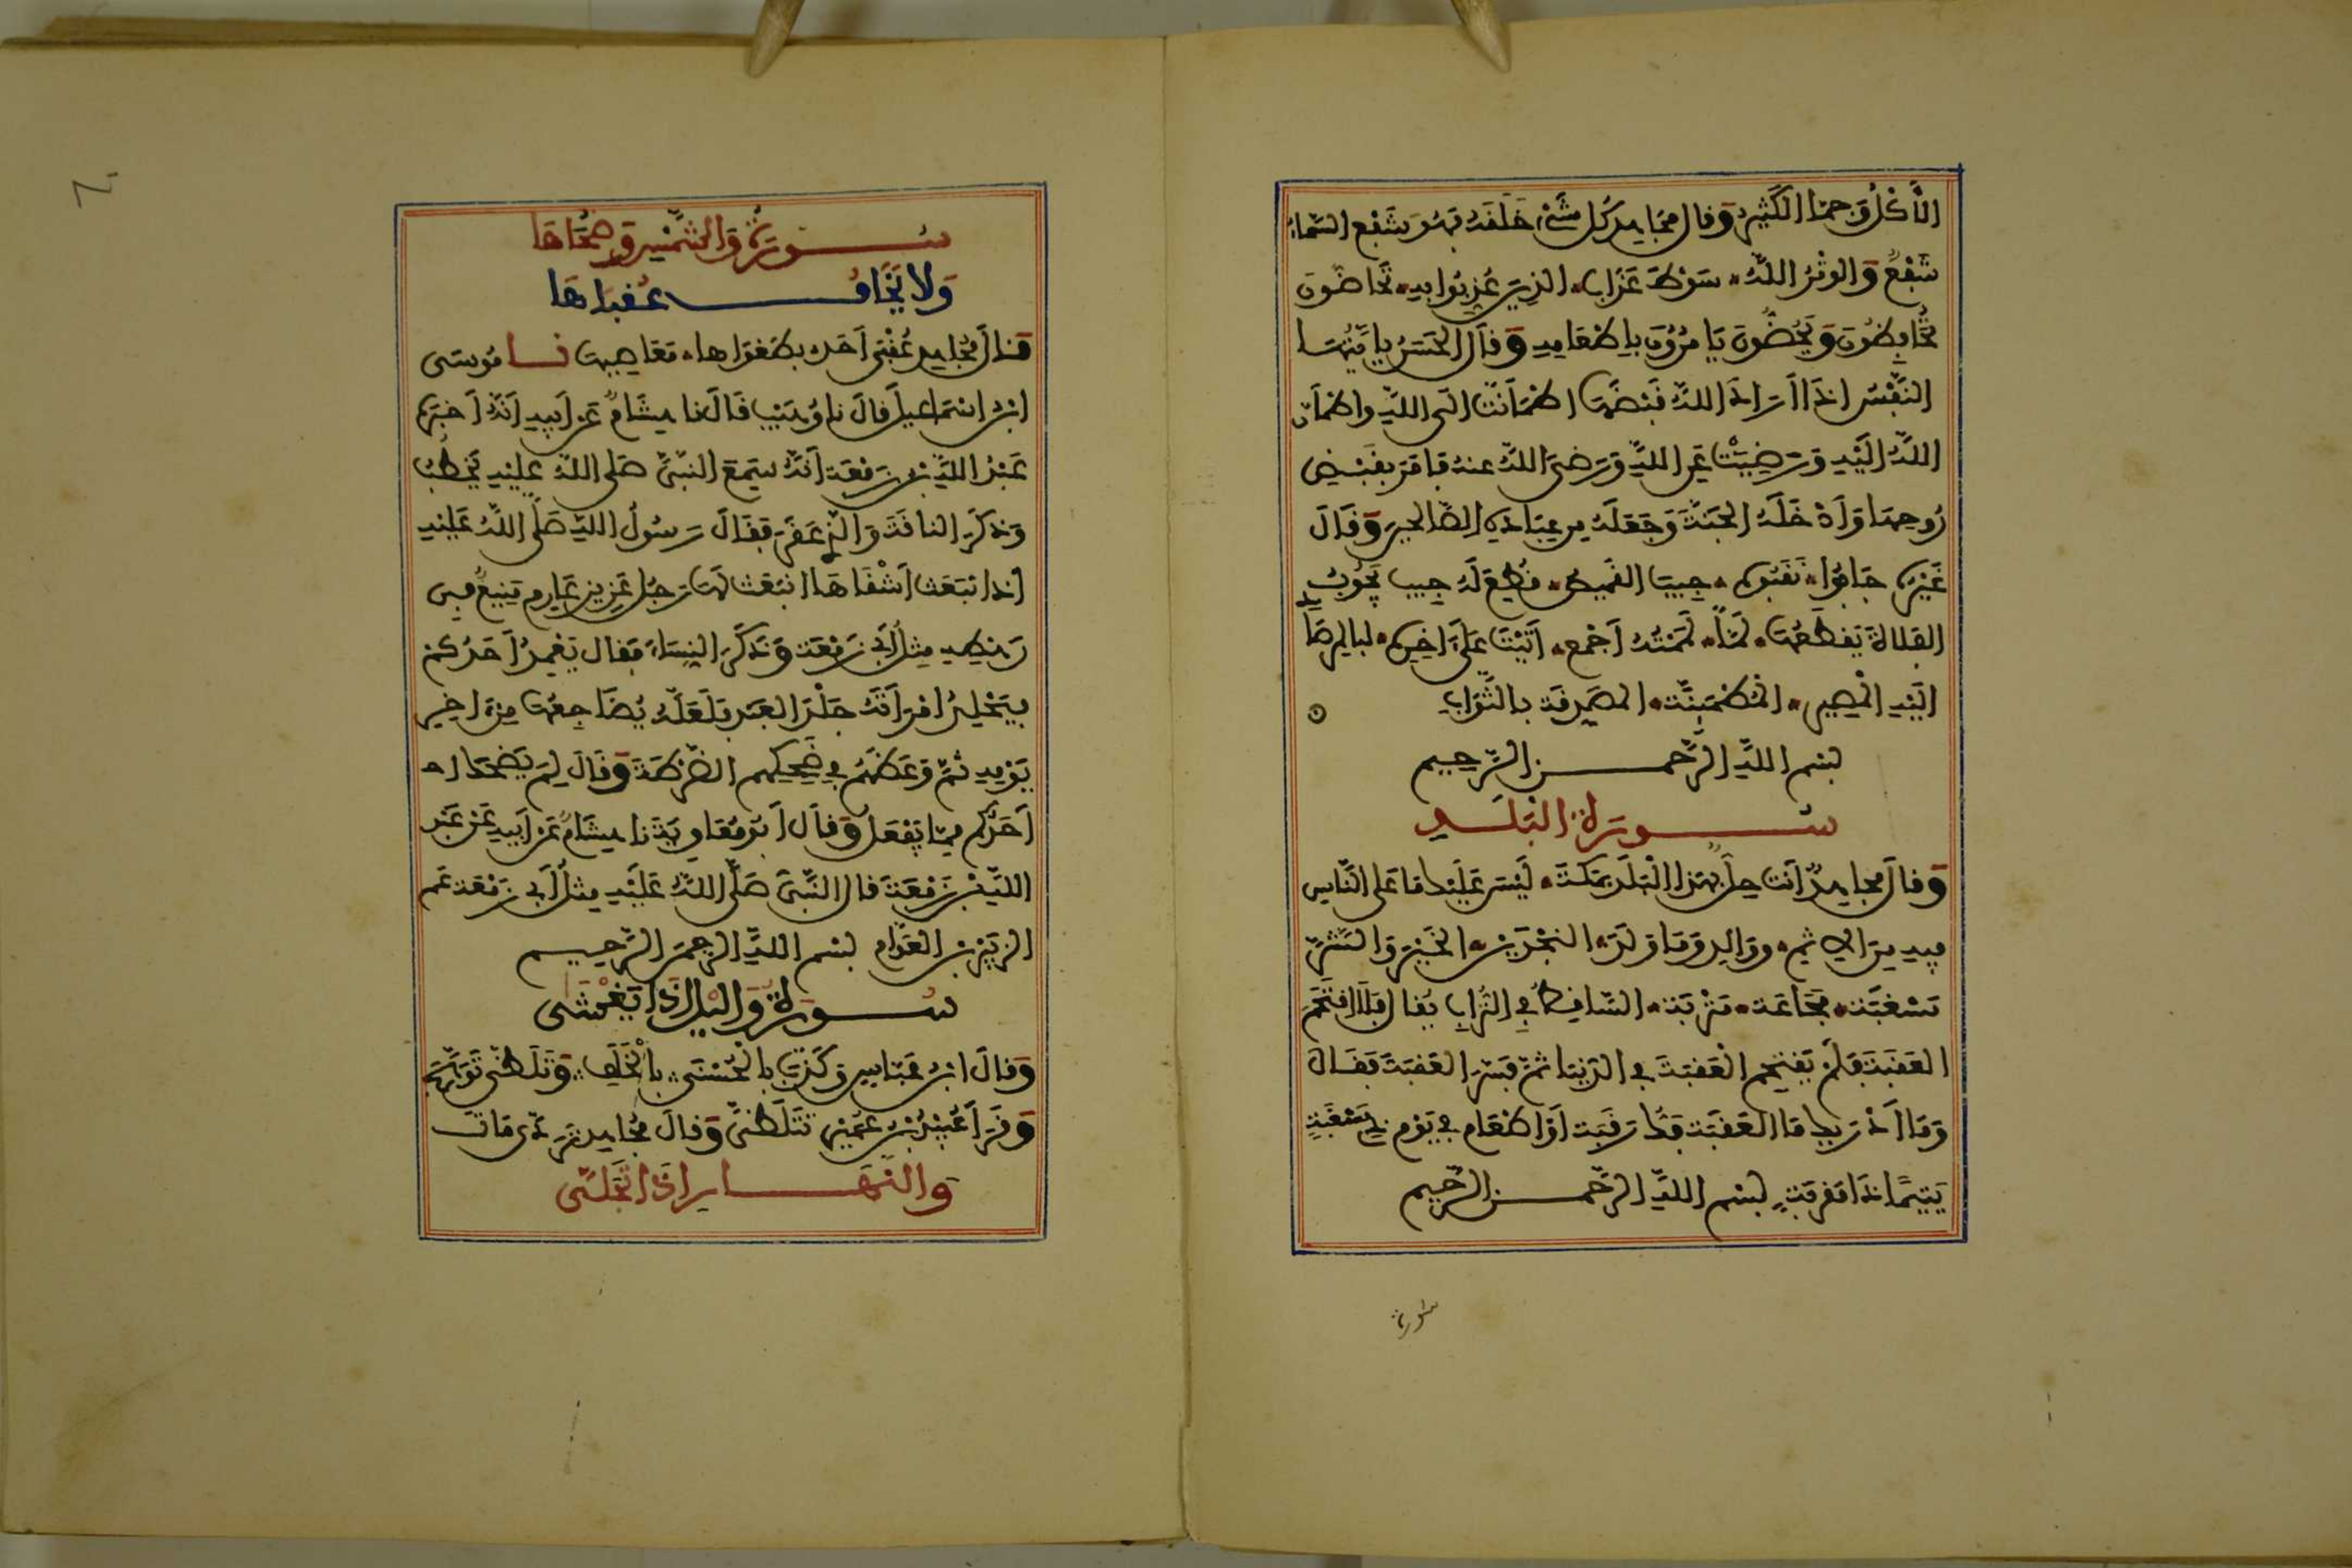 الأكل وجما الكثير وقال مجاهد كل شيء خلقه فهو شفع السماء
شفع والوتر الله سوط عذاب الذين عذبوا به تحاضون
تحافظون ويحضون يامرون بإطعامه وقال الحسن يا يتها
النفس إذا أراد الله قبضها اطمأنت إلى الله واطمأن
الله إليه ورضيت عن الله ورضي الله عنه فأمر بقبض
روحها وأدخله الجنة وجعله من عباده الصالحين وقال
غيره جابوا نقبوا من جيب القميص قطع له جيب يجوب
الفلاة يقطعها لما لممته أجمع أتيت على آخره لبالمرصاد
إليه المصير المطمئنة المصدقة بالثواب
بسم الله الرحمن الرحيم
سورة البلد
وقال مجاهد أنت حل بهذا البلد بمكة ليس عليك ما على الناس
فيه من الإثم ووالد وما ولد النجدين الخير والشر
مسغبة مجاعة متربة الساقط في التراب يقال فلا اقتحم
العقبة فلم يقتحم العقبة في الدنيا ثم فسر العقبة فقال
وما أدريك ما العقبة فك رقبة أو إطعام في يوم ذي مسغبة
يتيما ذا مقربة بسم الله الرحمن الرحيم
سورة
سورة والشمس وضحاها
ولا يخاف عقباها
وقال مجاهد عقبى أحد بطغواها معاصيها نا موسى
ابن إسماعيل قال نا وهيب قال نا هشام عن أبيه أنه أخبره
عبد الله بن زمعة أنه سمع النبي صلى الله عليه يخطب
وذكر الناقة والذي عقر فقال رسول الله صلى الله عليه
إذ انبعث أشقاها انبعث لها رجل عزيز عارم منيع في
رهطه مثل أبي زمعة وذكر النساء فقال يعمد أحدكم
يجلد امرأته جلد العبد فلعله يضاجعها من آخر
يومه ثم وعظهم في ضحكهم الضرطة وقال لم يضحك
أحدكم مما يفعل وقال أبو معاوية نا هشام عن أبيه عن عبد
الله بن زمعة قال النبي صلى الله عليه مثل أبي زمعة عم
الزبير بن العوام بسم الله الرحمن الرحيم
سورة واليل إذا يغشى
وقال ابن عباس وكذب بالحسنى بالخلف وتلظى توهج
وقرأ عبيد بن عمير تتلظى وقال مجاهد تردى مات
والنهار إذا تجلى